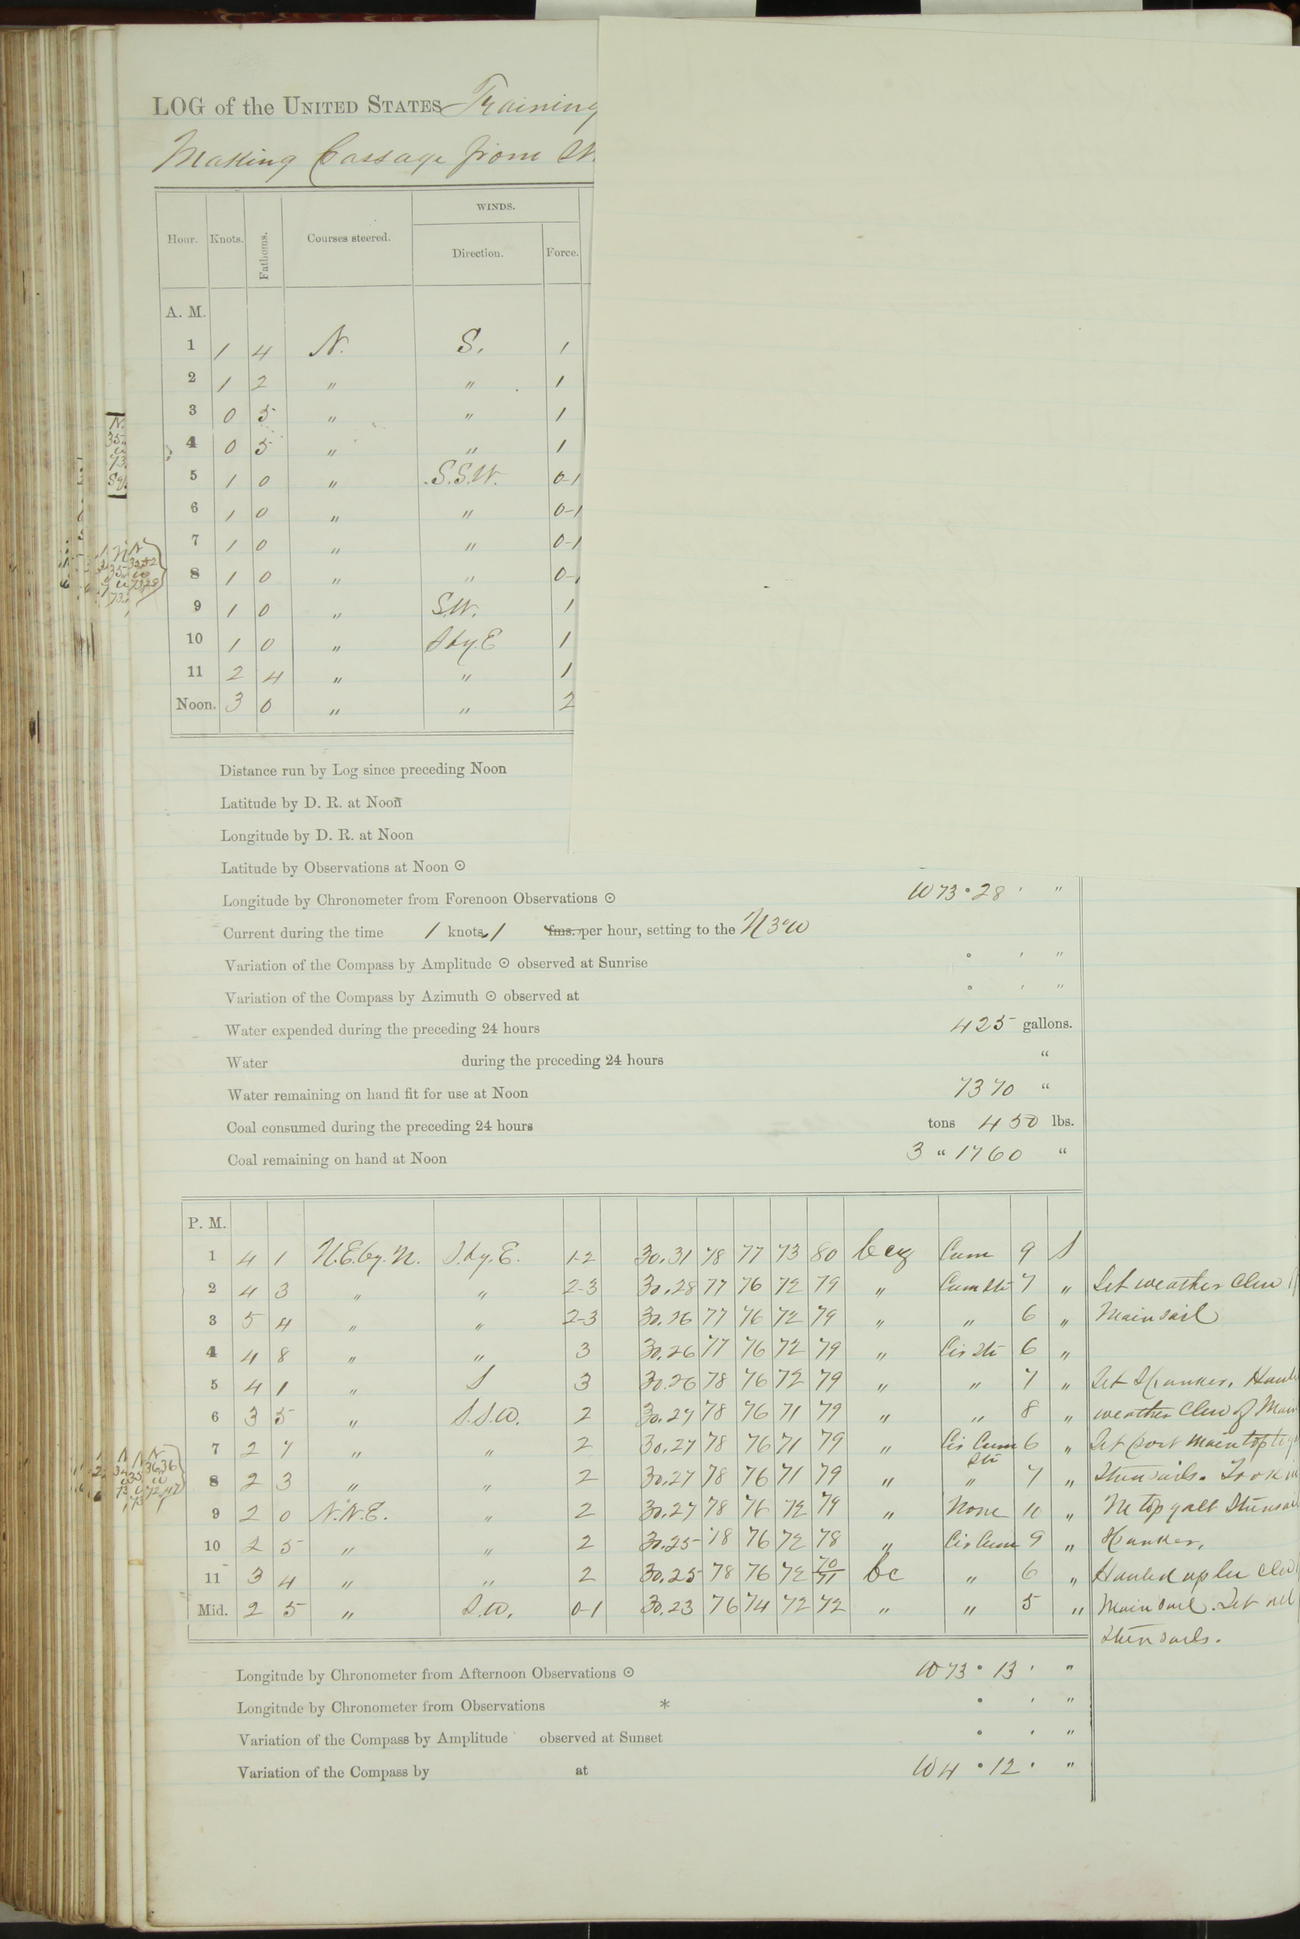 LOG of the UNITED STATES Training
Making Passage from
WINDS.
Hour. Knots. Fathoms. Courses steered. Direction. Force.
A. M.
1 1 4 N. S. 1
2 1 2 " " 1
3 0 5 " " 1
4 0 5 " " 1
5 1 0 " S.S.W. 0-1
6 1 0 " " 0-1
7 1 0 " " 0-1
8 1 0 " " 0-1
9 1 0 " S.W. 1
10 1 0 " S by E 1
11 2 4 " " 1
Noon. 3 0 " " 2
Distance run by Log since preceding Noon
Latitude by D. R. at Noon
Longitude by D. R. at Noon
Latitude by Observations at Noon ⊙
Longitude by Chronometer from Forenoon Observations ⊙ W 73 ° 28 ' "
Current during the time 1 knots 1 fms. per hour, setting to the N 3° W
Variation of the Compass by Amplitude ⊙ observed at Sunrise ° ' "
Variation of the Compass by Azimuth ⊙ observed at ° ' "
Water expended during the preceding 24 hours 425 gallons.
Water during the preceding 24 hours "
Water remaining on hand fit for use at Noon 7370 "
Coal consumed during the preceding 24 hours tons 450 lbs.
Coal remaining on hand at Noon 3 " 1760 "
P. M.
1 4 1 N.E. by N. S. by E. 1-2 30.31 78 77 73 80 bcq Cum 9 S
2 4 3 " " 2-3 30.28 77 76 72 79 " Cum Str 7 " Set weather clew
3 5 4 " " 2-3 30.26 77 76 72 79 " " 6 " Mainsail
4 4 8 " " 3 30.26 77 76 72 79 " Cir Str 6 "
5 4 1 " S 3 30.26 78 76 72 79 " " 7 " Set Spanker, Haul
6 3 5 " S.S.W. 2 30.27 78 76 71 79 " " 8 " weather clew of Main
7 2 7 " " 2 30.27 78 76 71 79 " Cir Cum Str 6 " Set port main top
8 2 3 " " 2 30.27 78 76 71 79 " " 7 " Stunsails. Took in
9 2 0 N.N.E. " 2 30.27 78 76 72 79 " None 10 " topgallt Stunsail
10 2 5 " " 2 30.25 78 76 72 78 " Cir Cum 9 " Spanker,
11 3 4 " " 2 30.25 78 76 72 70/71 bc " 6 " Hauled up lee clew
Mid. 2 5 " S.W. 0-1 30.23 76 74 72 72 " " 5 " Mainsail. Set all
Stunsails.
Longitude by Chronometer from Afternoon Observations ⊙ W 73 ° 13 ' "
Longitude by Chronometer from Observations * ° ' "
Variation of the Compass by Amplitude observed at Sunset ° ' "
Variation of the Compass by at W 4 ° 12 ' "